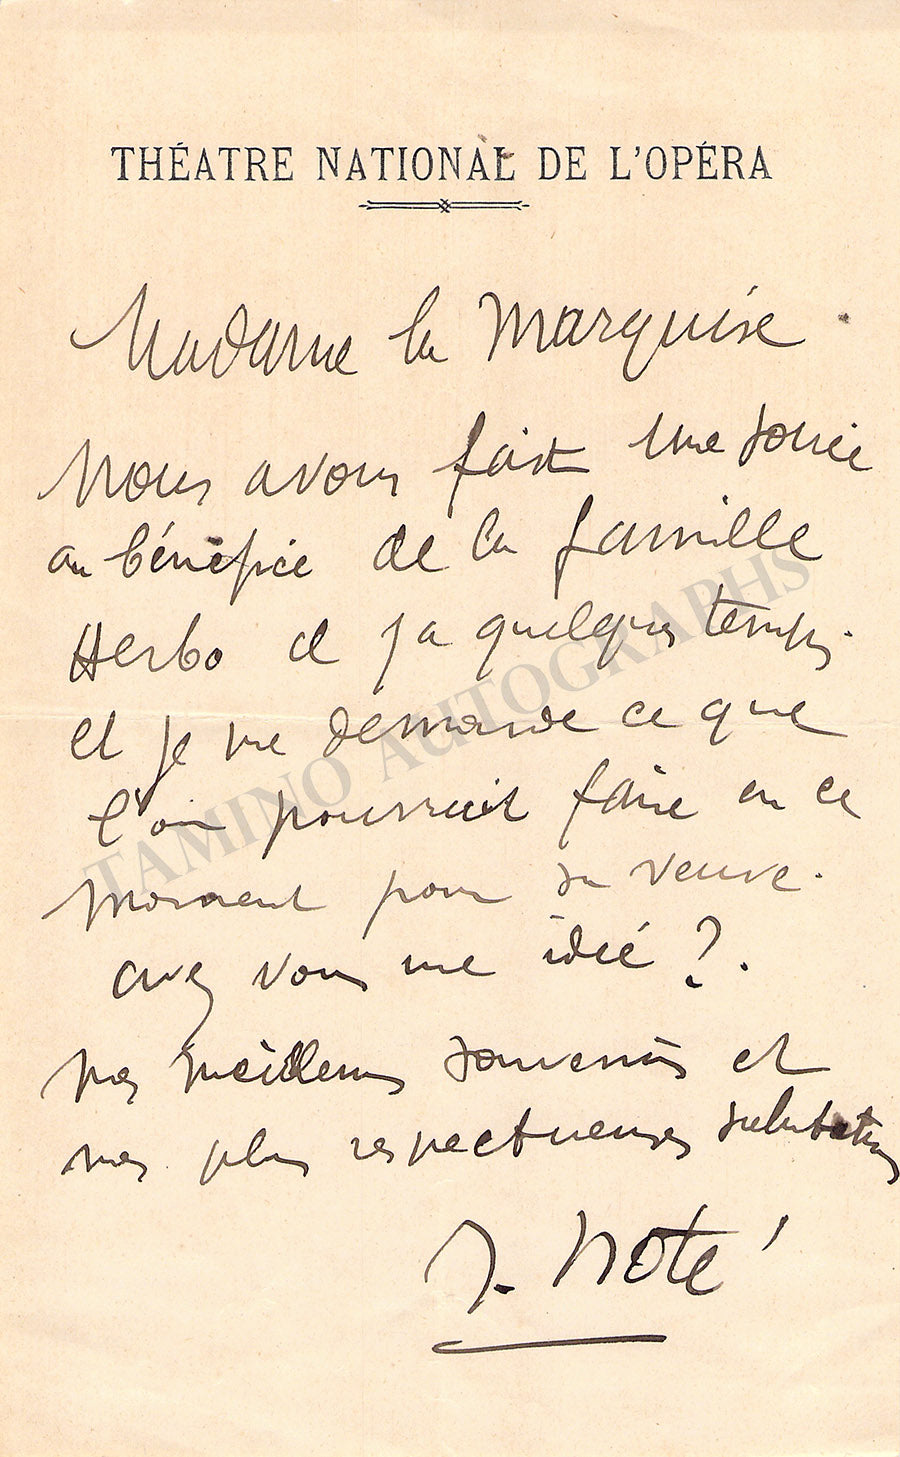 THÉATRE NATIONAL DE L'OPÉRA
Madame la Marquise
Nous avons fait une soirée
au bénéfice de la famille
Herbo il y a quelques temps
et je me demande ce que
l'on pourrait faire en ce
moment pour sa veuve.
avez vous une idée ?.
mes meilleurs souvenirs et
mes plus respectueuses salutations
J. Noté
TAMINO AUTOGRAPHS